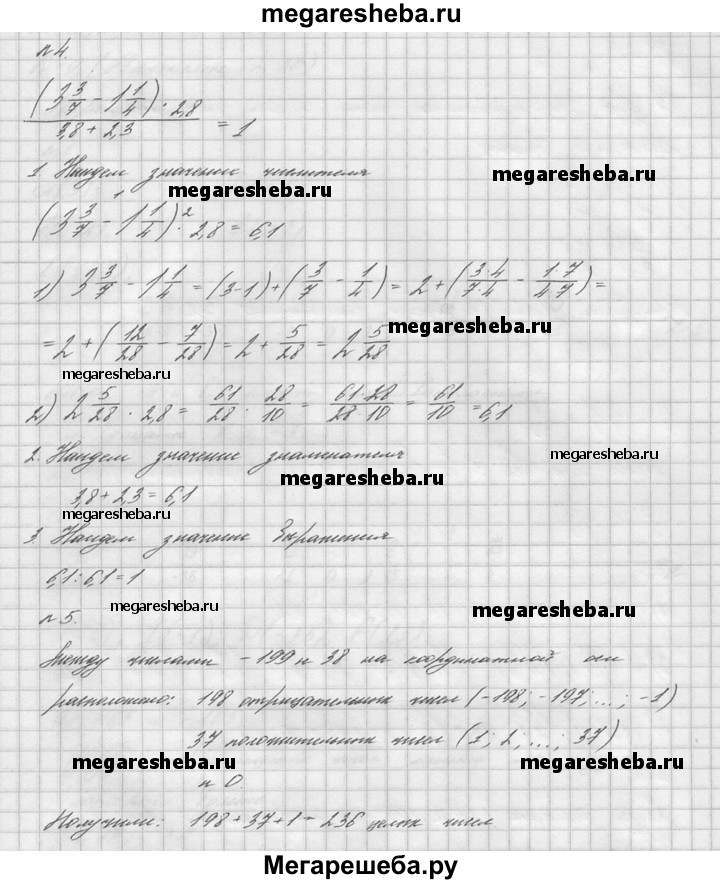 megaresheba.ru
№4.
(3 3/7 − 1 1/4) · 2,8 / 3,8 + 2,3 = 1
1. Найдем значение числителя
megaresheba.ru megaresheba.ru
(3 3/7 −¹ 1 1/4) ·² 2,8 = 6,1
1) 3 3/7 − 1 1/4 = (3−1) + (3/7 − 1/4) = 2 + (3·4/7·4 − 1·7/4·7) =
= 2 + (12/28 − 7/28) = 2 + 5/28 = 2 5/28
megaresheba.ru
megaresheba.ru
2) 2 5/28 · 2,8 = 61/28 · 28/10 = 61·28/28·10 = 61/10 = 6,1
2. Найдем значение знаменателя
megaresheba.ru
megaresheba.ru
3,8 + 2,3 = 6,1
megaresheba.ru
3. Найдем значение выражения
6,1 : 6,1 = 1
megaresheba.ru megaresheba.ru
№5.
Между числами −199 и 38 на координатной оси
расположено: 198 отрицательных чисел (−198; −197; ...; −1)
37 положительных чисел (1; 2; ...; 37)
megaresheba.ru megaresheba.ru
и 0
Получили: 198 + 37 + 1 = 236 целых чисел
Мегарешеба.ру